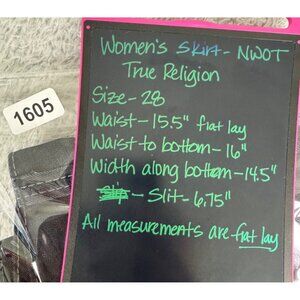 Women's Skirt - NWOT
True Religion
Size - 28
Waist - 15.5" flat lay
Waist to bottom - 16"
Width along bottom - 14.5"
Slip - Slit - 6.75"
All measurements are flat lay
1605